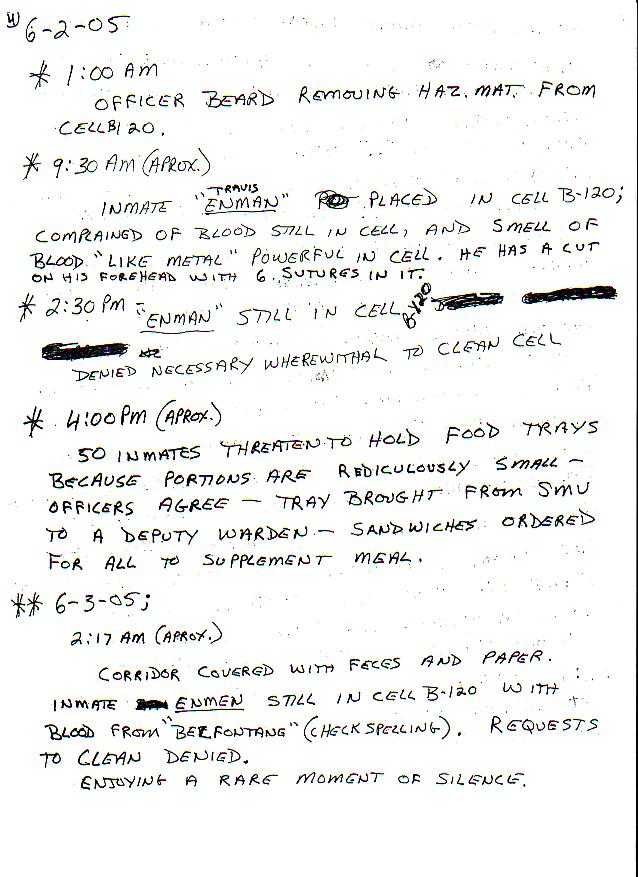 6-2-05
* 1:00 AM
OFFICER BEARD REMOVING HAZ. MAT. FROM
CELL B120.
* 9:30 AM (APROX.)
TRAVIS
INMATE "ENMAN" PLACED IN CELL B-120;
COMPLAINED OF BLOOD STILL IN CELL, AND SMELL OF
BLOOD "LIKE METAL" POWERFUL IN CELL. HE HAS A CUT
ON HIS FOREHEAD WITH 6 SUTURES IN IT.
* 2:30 PM - "ENMAN" STILL IN CELL B-120
DENIED NECESSARY WHEREWITHAL TO CLEAN CELL
* 4:00 PM (APROX.)
50 INMATES THREATEN TO HOLD FOOD TRAYS
BECAUSE PORTIONS ARE REDICULOUSLY SMALL -
OFFICERS AGREE - TRAY BROUGHT FROM SMU
TO A DEPUTY WARDEN - SANDWICHES ORDERED
FOR ALL TO SUPPLEMENT MEAL.
** 6-3-05;
2:17 AM (APROX.)
CORRIDOR COVERED WITH FECES AND PAPER.
INMATE ENMEN STILL IN CELL B-120 WITH
BLOOD FROM "BELFONTANG" (CHECK SPELLING). REQUESTS
TO CLEAN DENIED.
ENJOYING A RARE MOMENT OF SILENCE.